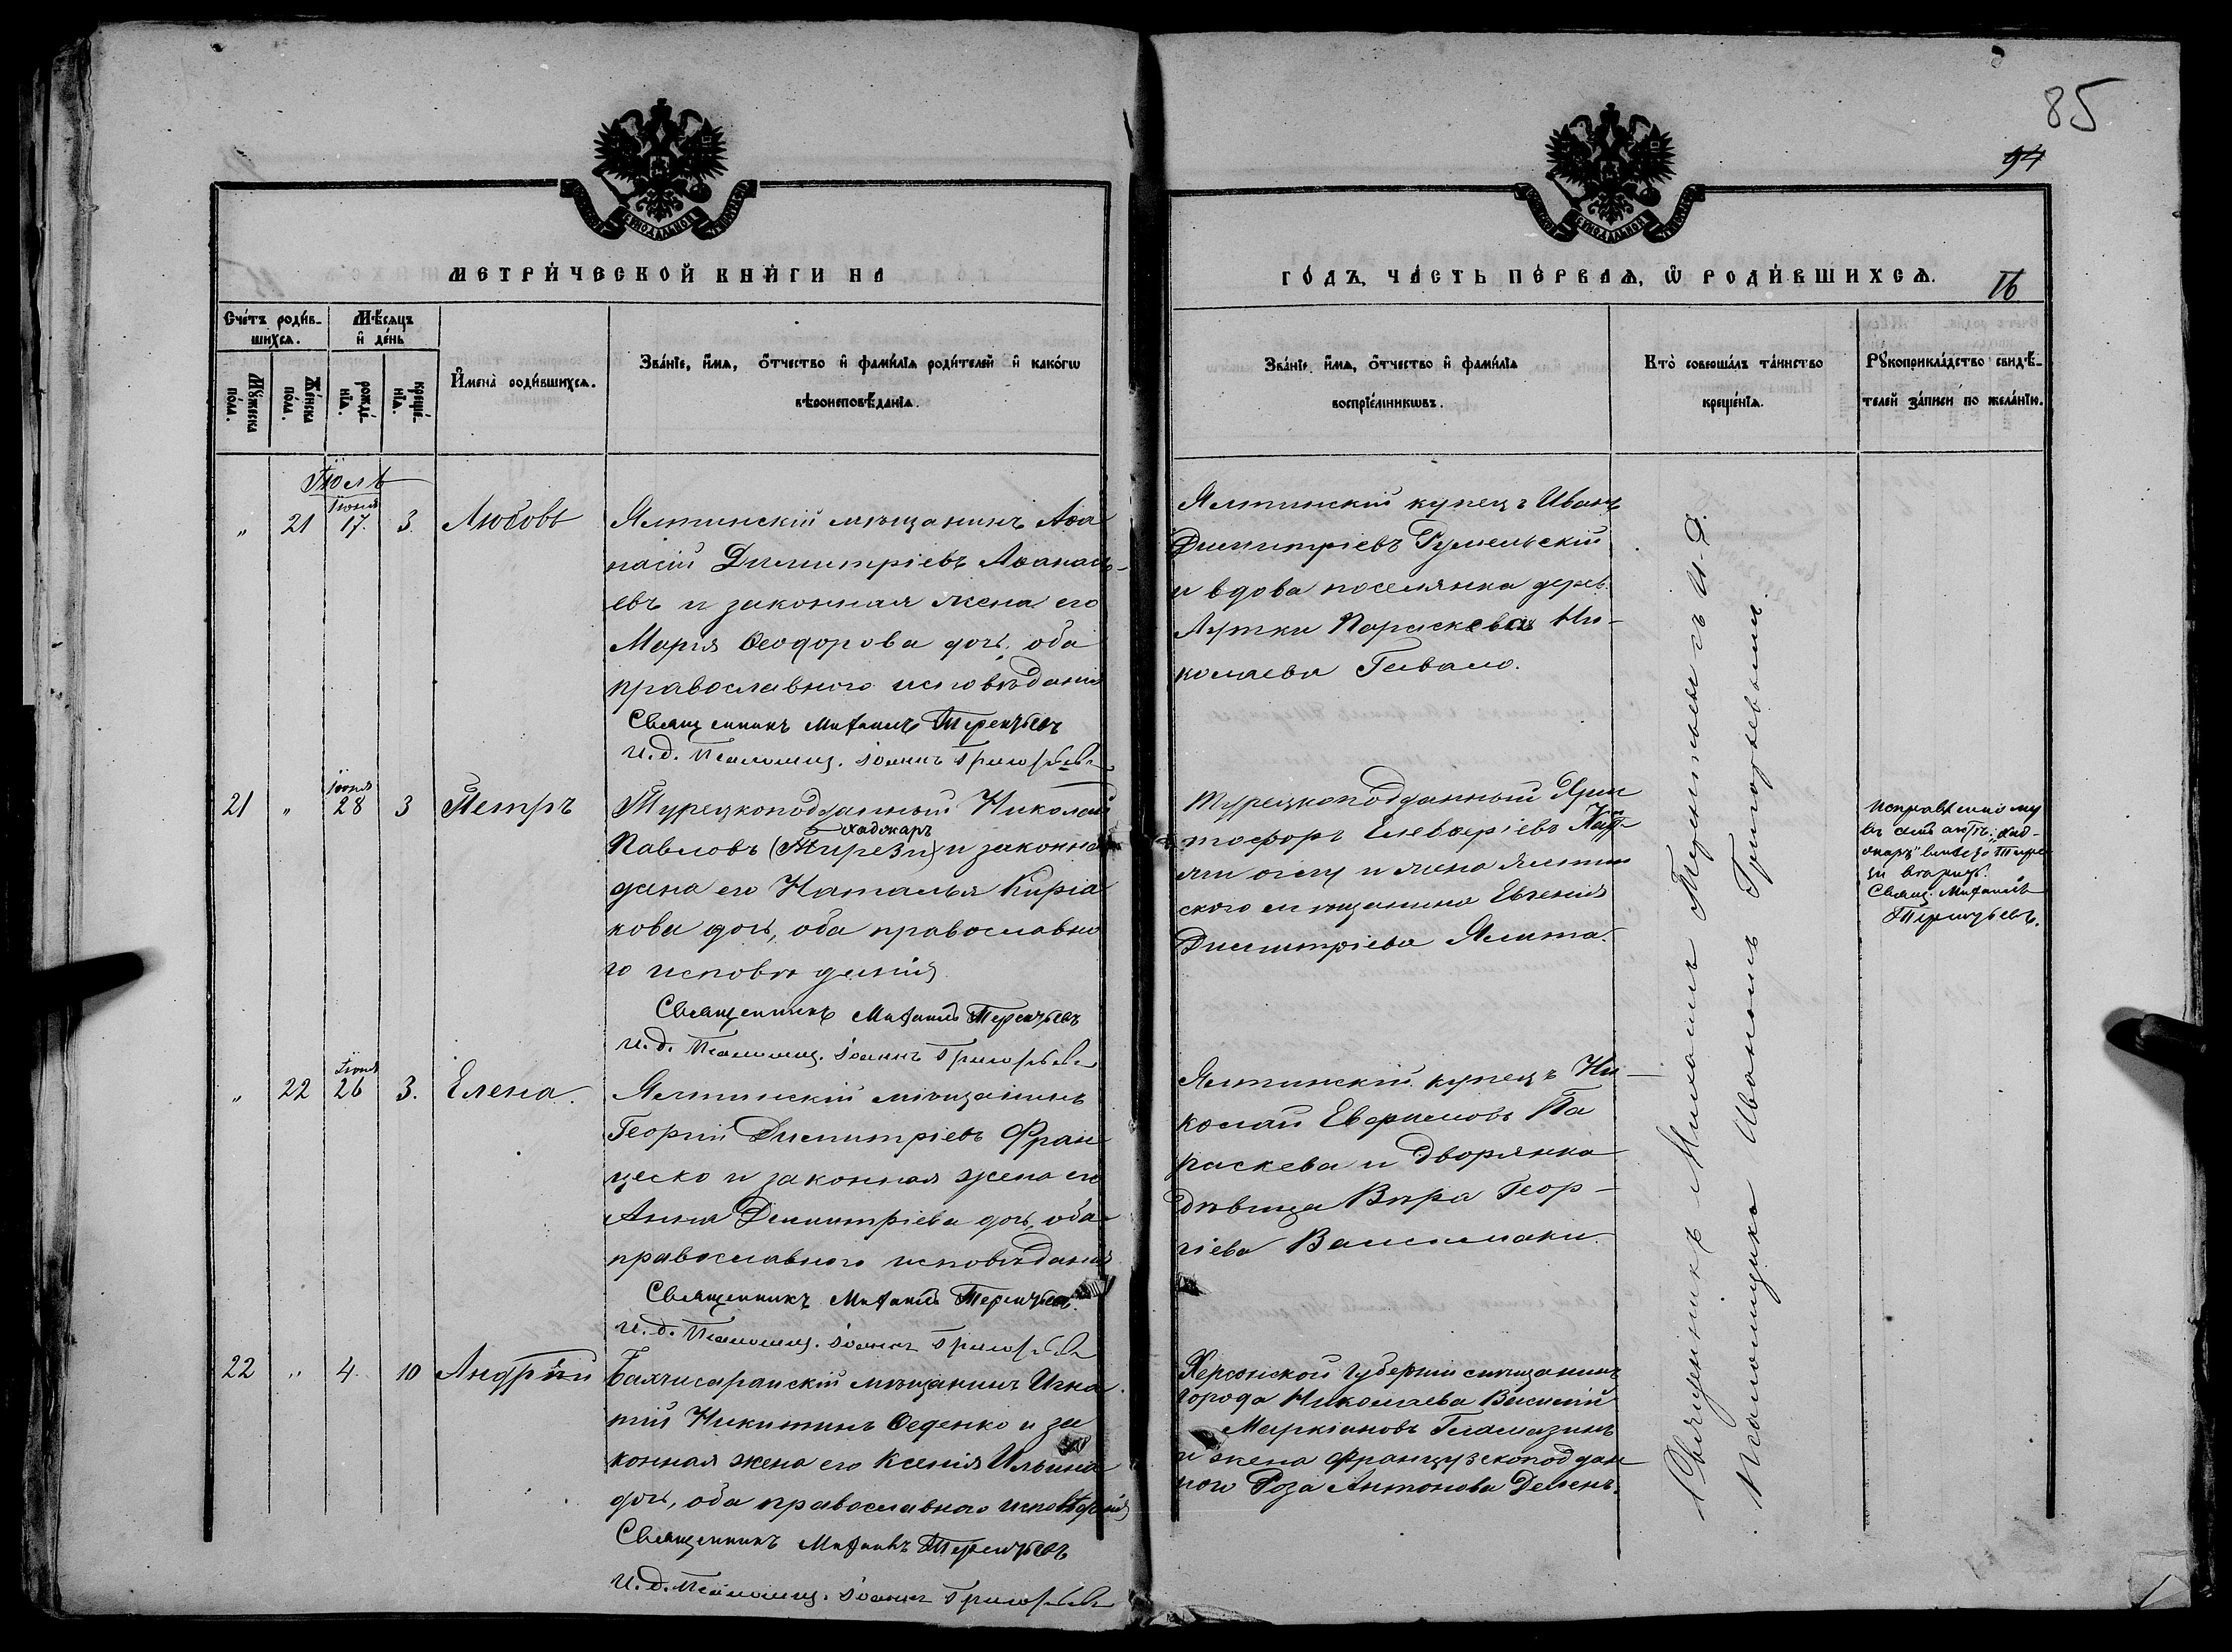 85
94
МЕТРИЧЕСКОЙ КНИГИ НА
ГОДЪ, ЧАСТЬ ПЕРВАЯ, Ѡ РОДИВШИХСЯ.
16
Счетъ родив-
шихся.
Мѣсяцъ
и день
Мужеска пола.
Женска пола.
рожде-
нія.
креще-
нія.
Имена родившихся.
Званіе, имя, отчество и фамилія родителей и какогѡ
вѣроисповѣданія.
Званіе, имя, отчество и фамилія
воспріемниковъ.
Кто совершалъ таинство
крещенія.
Рукоприкладство свидѣ-
телей записи по желанію.
Іюль
" 21 Іюня 17. 3. Любовь
Ялтинскій мѣщанинъ Аѳа
насій Димитріевъ Аѳанась-
евъ и законная жена его
Марія Ѳеодорова дочь, оба
православного исповѣданія
Священникъ Михаилъ Терентьевъ
И. д. Псаломщ. Іоаннъ Григорьевъ
Ялтинскій купецъ Иванъ
Димитріевъ
и вдова поселянка дерев.
Аутки Параскева Ни-
колаева
21 " Іюня 28 3 Петръ
Турецкоподданный Николай
Хаджаръ
Павловъ (Тирези) и законна
жена его Наталья Киріа
кова дочь, оба православно
го исповѣданія
Священникъ Михаилъ Терентьевъ
И. д. Псаломщ. Іоаннъ Григорьевъ
Турецкоподданный Хрис
тофоръ Елевѳеріевъ
оглу и жена Ялтин
ского мѣщанина Евгенія
Димитріева Ялита.
Исправленному
Свящ. Михаилъ
Терентьевъ.
" 22 Іюня 26 3. Елена.
Ялтинскій мѣщанинъ
Георгій Димитріевъ Фран
ческо и законная жена его
Анна Димитріева дочь, оба
православного исповѣданія
Священникъ Михаилъ Терентьевъ.
И. д. Псаломщ. Іоаннъ Григорьевъ
Ялтинскій купецъ Ни-
колай Евфимовъ Па
раскева и дворянка
дѣвица Вѣра Геор-
гіева
22 " 4. 10 Андрѣй
Бахчисарайскій мѣщанинъ Игна
тій Никитинъ Ѳеденко и за
конная жена его Ксенія Ильина
дочь, оба православного исповѣданія
Священникъ Михаилъ Терентьевъ
И. д. Псаломщ. Іоаннъ Григорьевъ
Херсонской Губерніи мѣщанинъ
города Николаева Василій
Маркіановъ Гламазинъ
и жена Французскоподдан
ного Роза Антонова
Священникъ Михаилъ Терентьевъ съ И. Д.
Псаломщика Иваномъ Григорьевымъ.